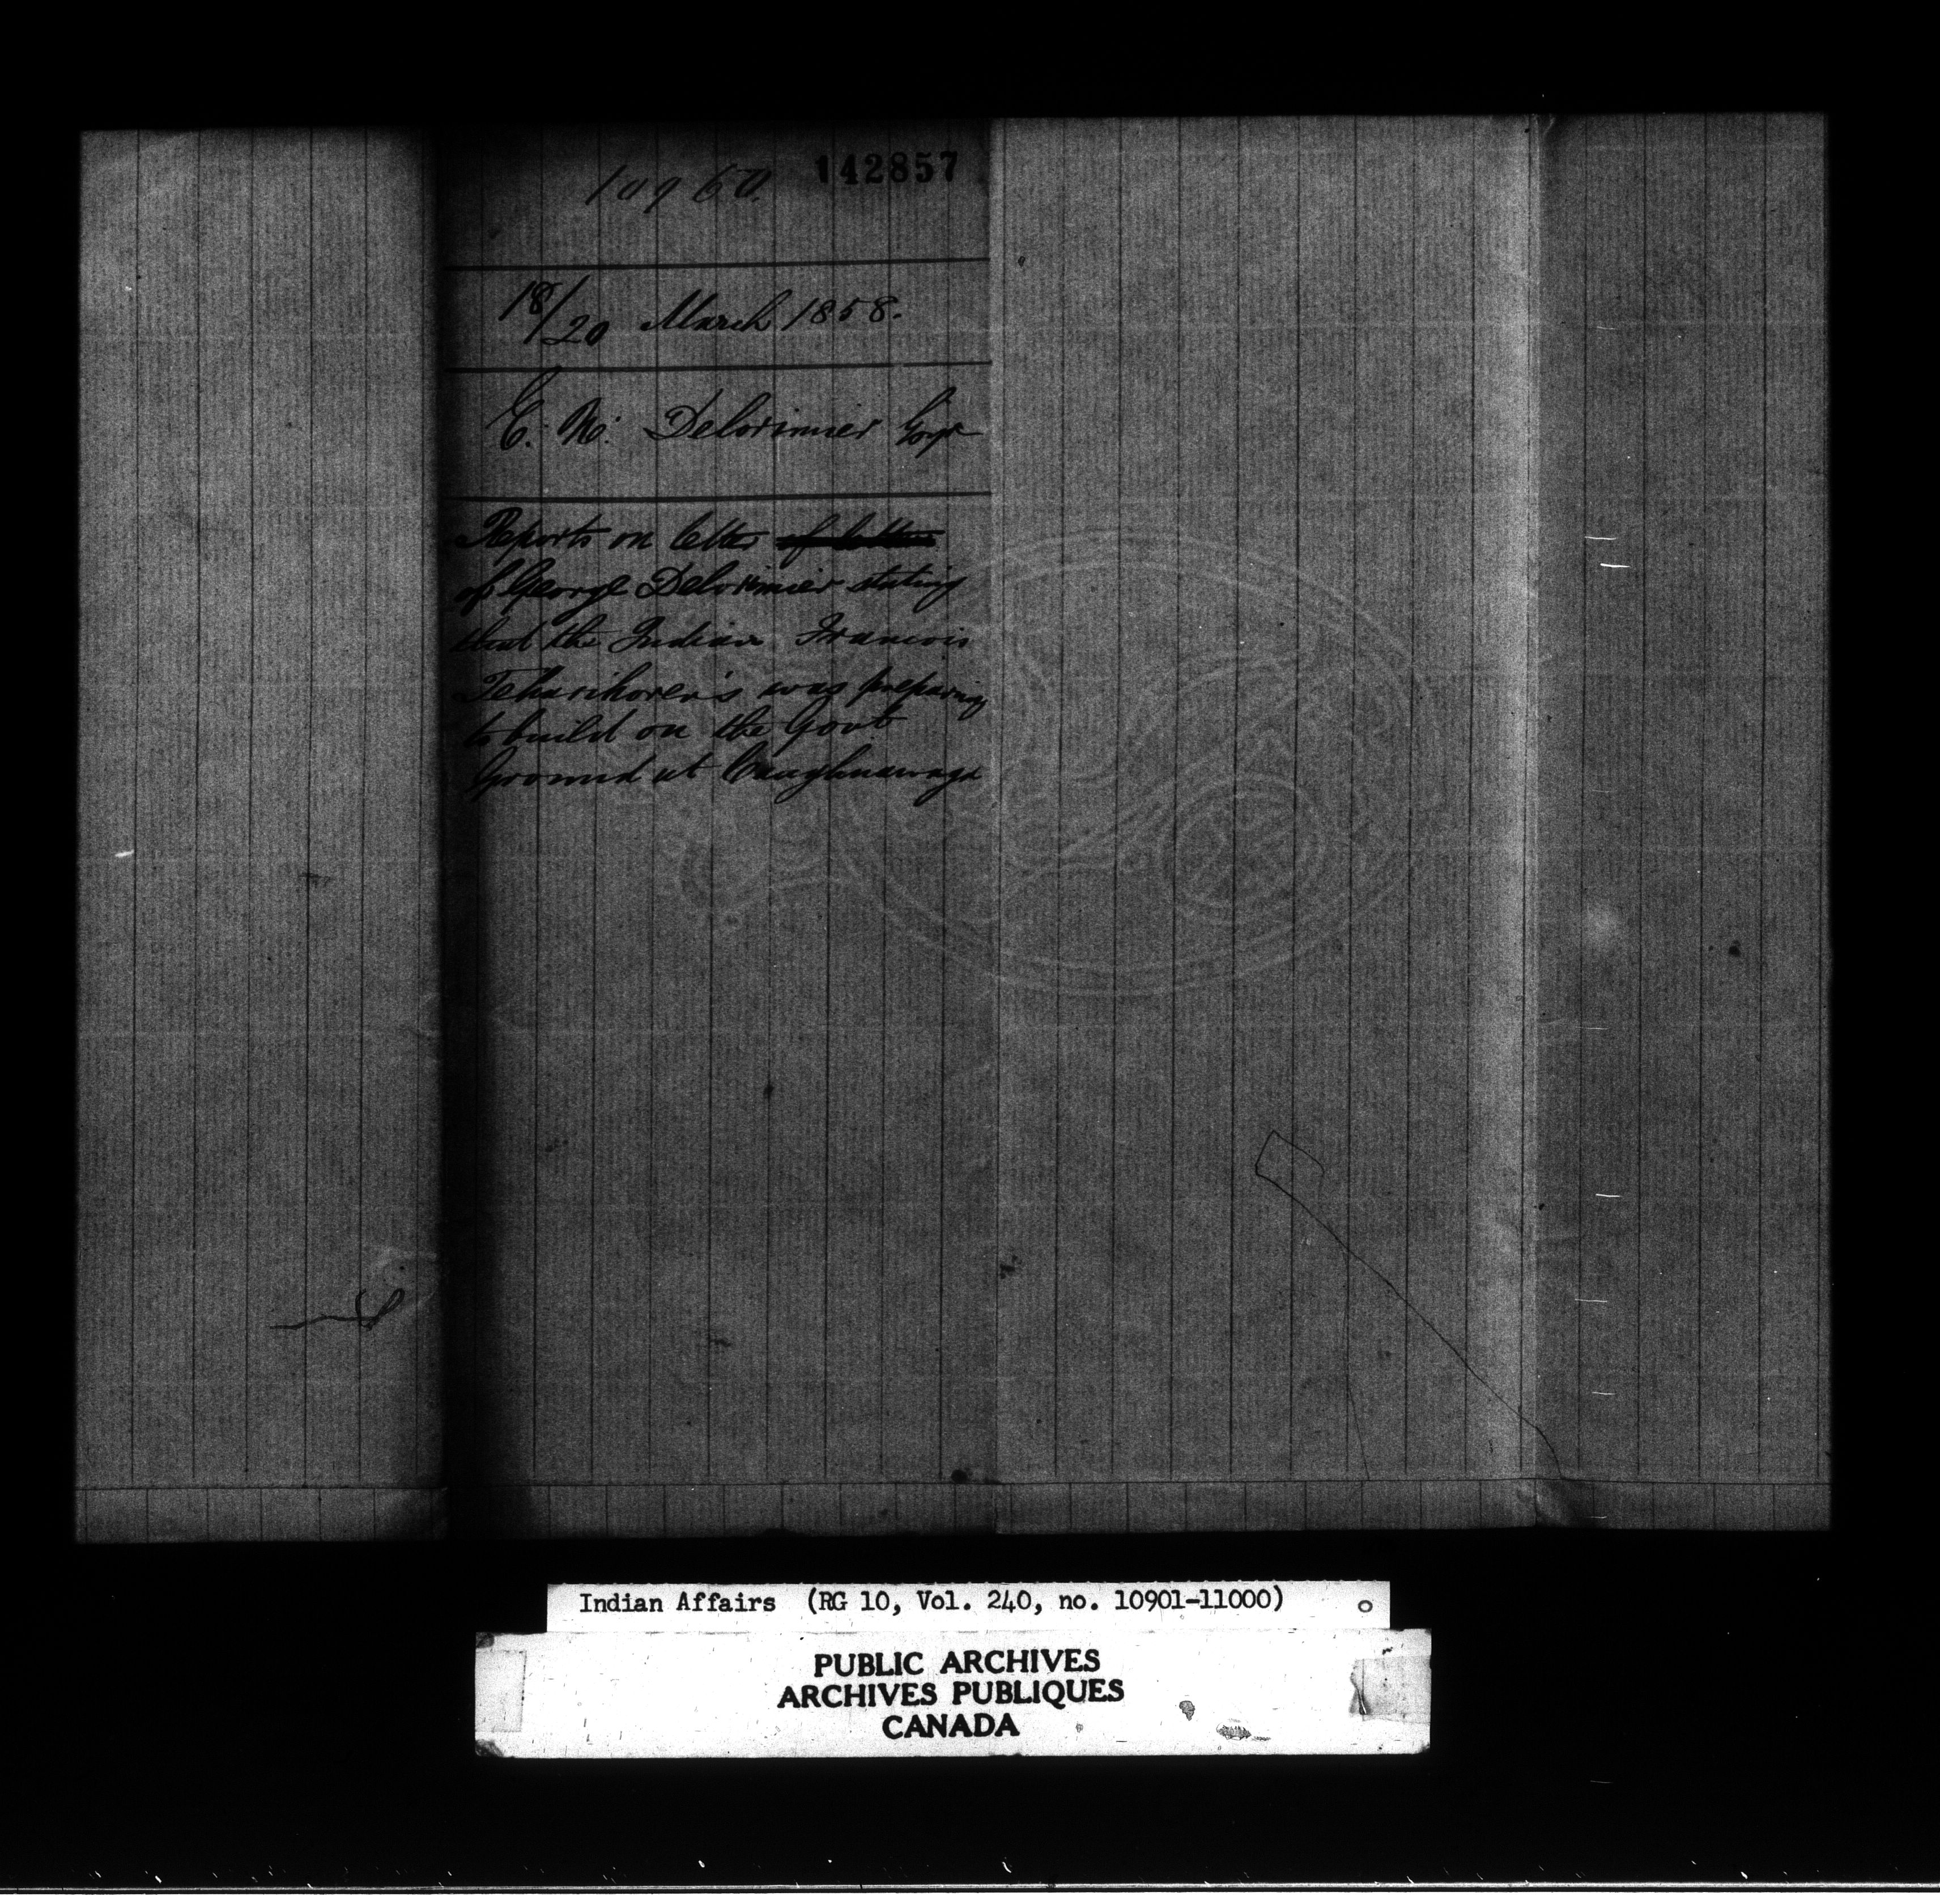 10960.
142857
18/20 March 1858.
E. N. Delorimier Esqr
Reports on letter of letter
of George Delorimier stating
that the Indian Francois
Teharihoren's was preparing
to build on the Govt
Ground at Caughnawaga
Indian Affairs (RG 10, Vol. 240, no. 10901-11000)
PUBLIC ARCHIVES
ARCHIVES PUBLIQUES
CANADA